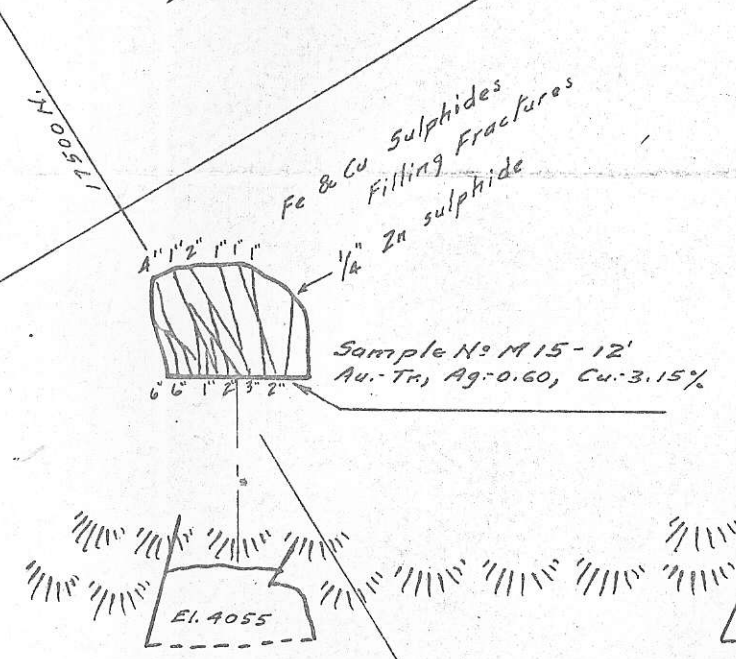 17500 N.
Fe & Cu Sulphides
Filling Fractures
1/4" Zn sulphide
4" 1" 2" 1" 1" 1"
Sample No M 15 - 12'
Au.-Tr., Ag.-0.60, Cu.-3.15%
6" 6" 1" 2" 3" 2"
El. 4055